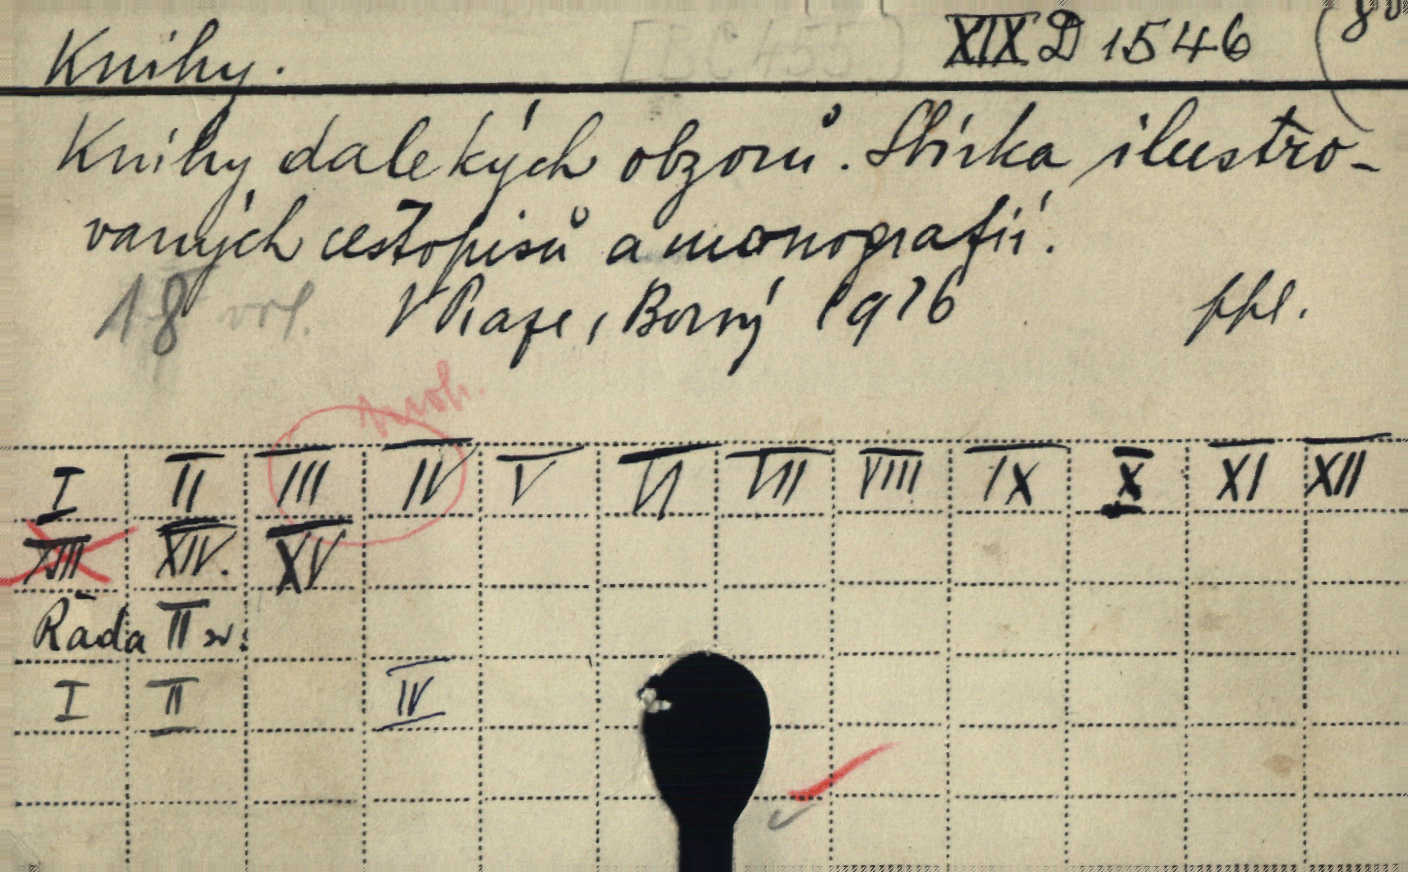 Knihy. [BC 455] XIX D 1546 (8°
Knihy dalekých obzorů. Sbírka ilustro-
vaných cestopisů a monografií.
18 vol. V Praze, Borný 1916 ppl.
I II III IV V VI VII VIII IX X XI XII
XIII XIV. XV
Řada II sv:
I II IV